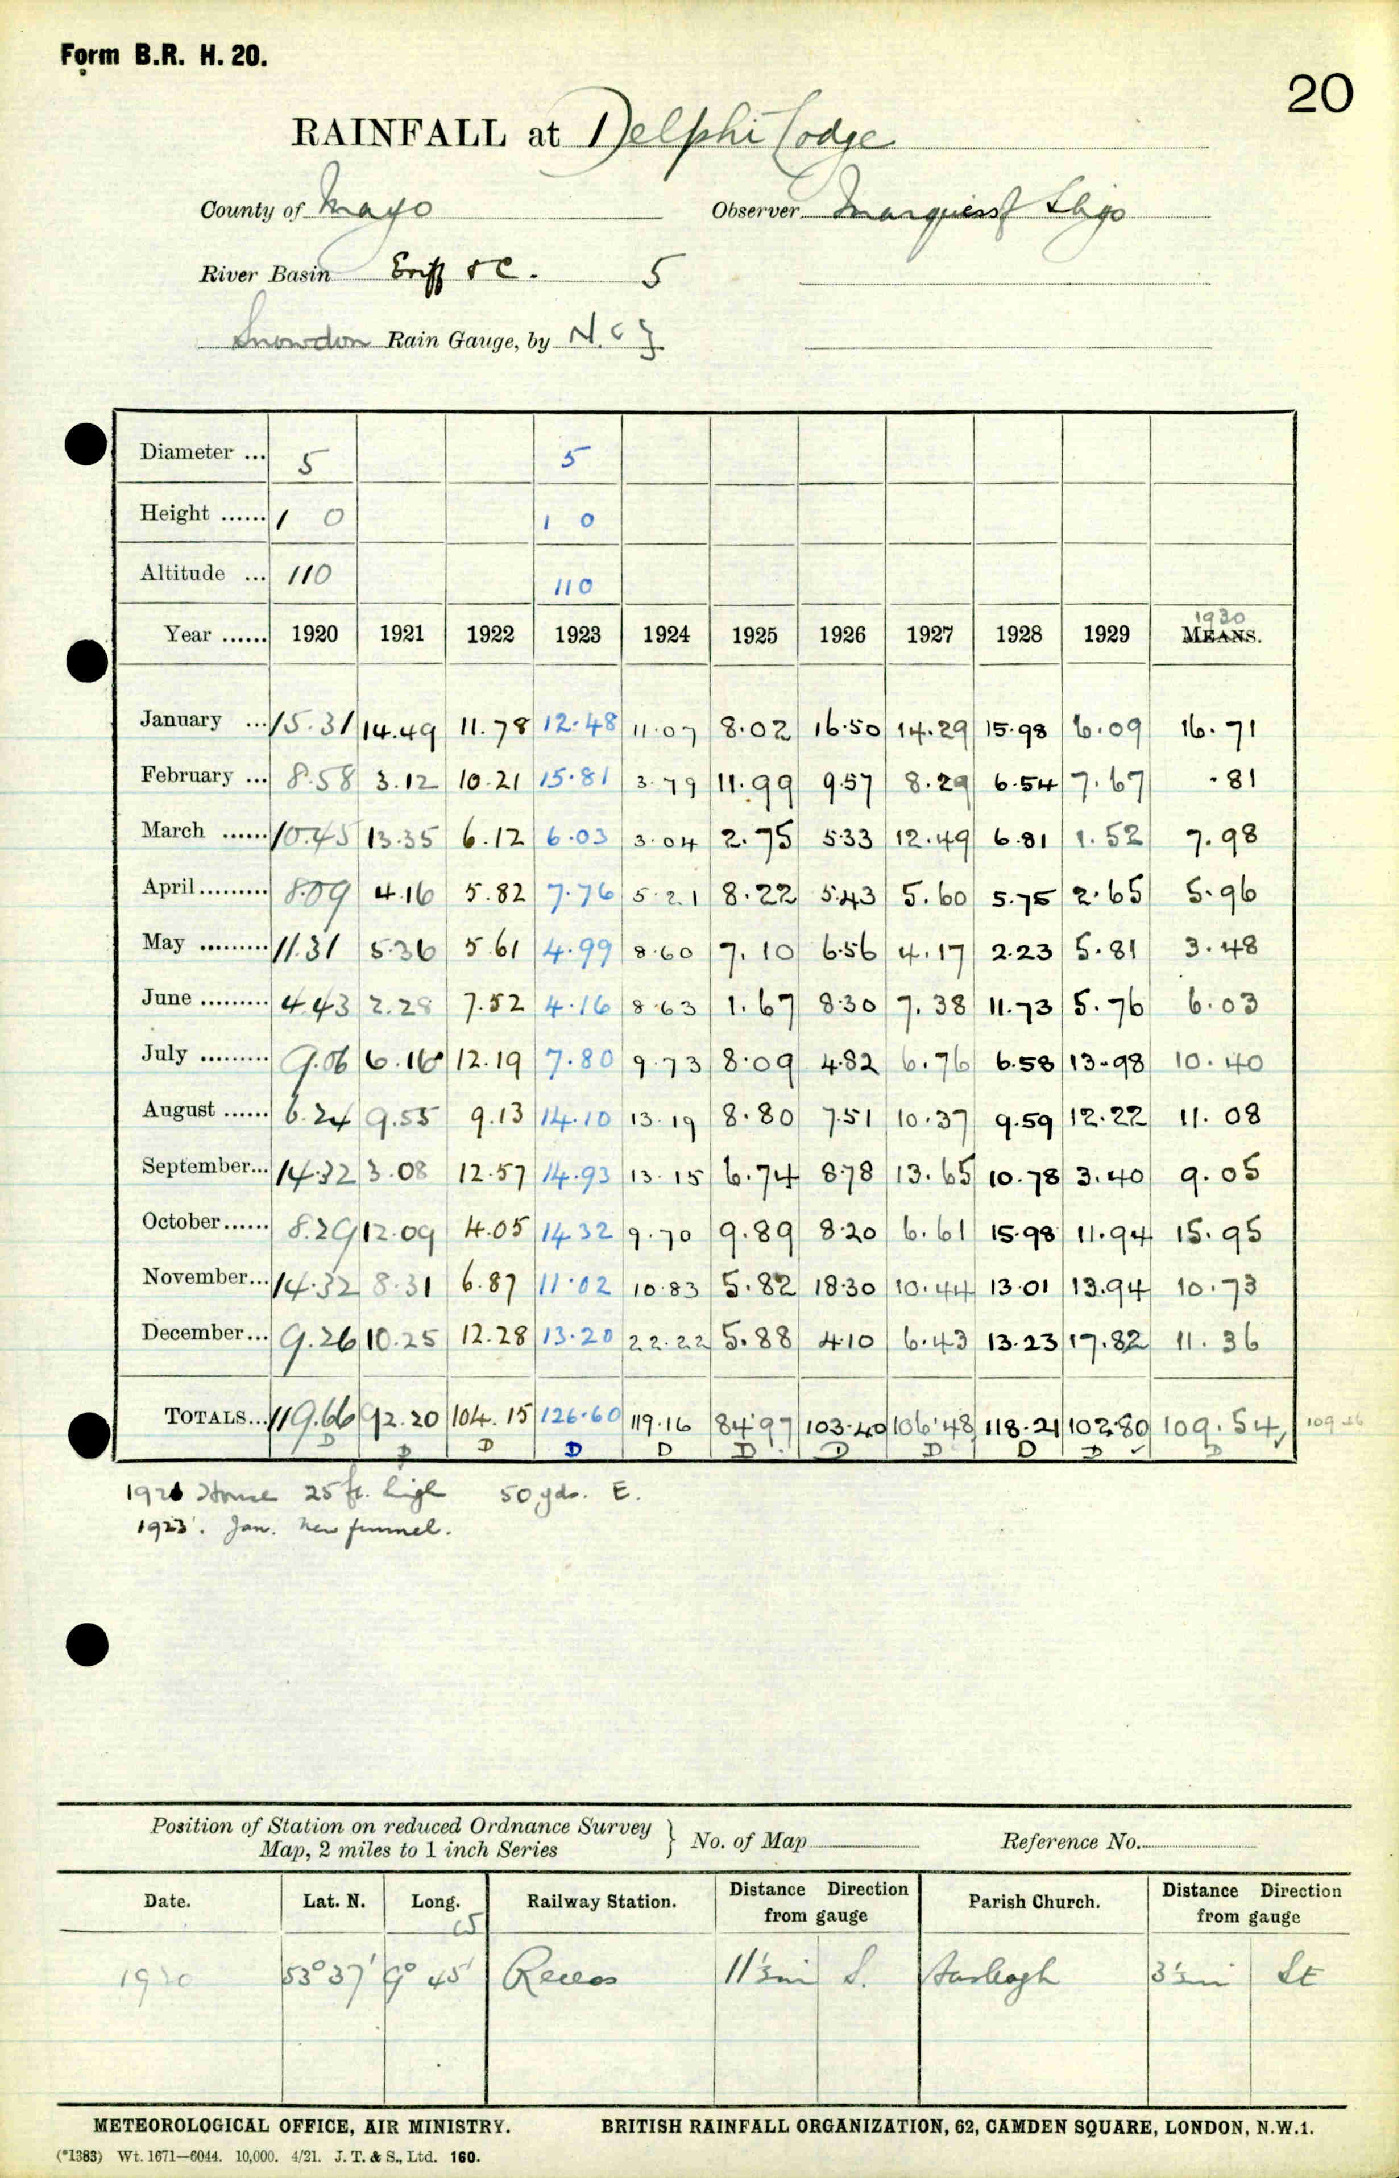 Form B.R. H. 20.
20
RAINFALL at Delphi Lodge
County of Mayo Observer Marquess of Sligo
River Basin Erriff &C. 5
Snowdon Rain Gauge, by N. & Z
Diameter ... 5 5
Height ...... 1 0 1 0
Altitude ... 110 110
1930
Year ...... 1920 1921 1922 1923 1924 1925 1926 1927 1928 1929 MEANS.
January ... 15.31 14.49 11.78 12.48 11.07 8.02 16.50 14.29 15.98 6.09 16.71
February ... 8.58 3.12 10.21 15.81 3.79 11.99 9.57 8.29 6.54 7.67 .81
March ...... 10.45 13.35 6.12 6.03 3.04 2.75 5.33 12.49 6.81 1.52 7.98
April ......... 8.09 4.16 5.82 7.76 5.21 8.22 5.43 5.60 5.75 2.65 5.96
May ......... 11.31 5.36 5.61 4.99 8.60 7.10 6.56 4.17 2.23 5.81 3.48
June ......... 4.43 2.28 7.52 4.16 8.63 1.67 8.30 7.38 11.73 5.76 6.03
July ......... 9.06 6.16 12.19 7.80 9.73 8.09 4.82 6.76 6.58 13.98 10.40
August ...... 6.24 9.55 9.13 14.10 13.19 8.80 7.51 10.37 9.59 12.22 11.08
September... 14.32 3.08 12.57 14.93 13.15 6.74 8.78 13.65 10.78 3.40 9.05
October...... 8.29 12.09 4.05 14.32 9.70 9.89 8.20 6.61 15.98 11.94 15.95
November... 14.32 8.31 6.87 11.02 10.83 5.82 18.30 10.44 13.01 13.94 10.73
December... 9.26 10.25 12.28 13.20 22.22 5.88 4.10 6.43 13.23 17.82 11.36
TOTALS... 119.66 92.20 104.15 126.60 119.16 84.97 103.40 106.48 118.21 102.80 109.54 109.26
D D D D D D D D D D D
1921 House 25 ft. high 50 yds. E.
1923. Jan. New funnel.
Position of Station on reduced Ordnance Survey Map, 2 miles to 1 inch Series } No. of Map Reference No.
Date. Lat. N. Long. Railway Station. Distance Direction from gauge Parish Church. Distance Direction from gauge
1920 53° 37' 9° 45' Recess 11½mi S. Aasleagh 3½mi SE
METEOROLOGICAL OFFICE, AIR MINISTRY. BRITISH RAINFALL ORGANIZATION, 62, CAMDEN SQUARE, LONDON, N.W.1.
(*1383) Wt. 1671—6044. 10,000. 4/21. J. T. & S., Ltd. 160.